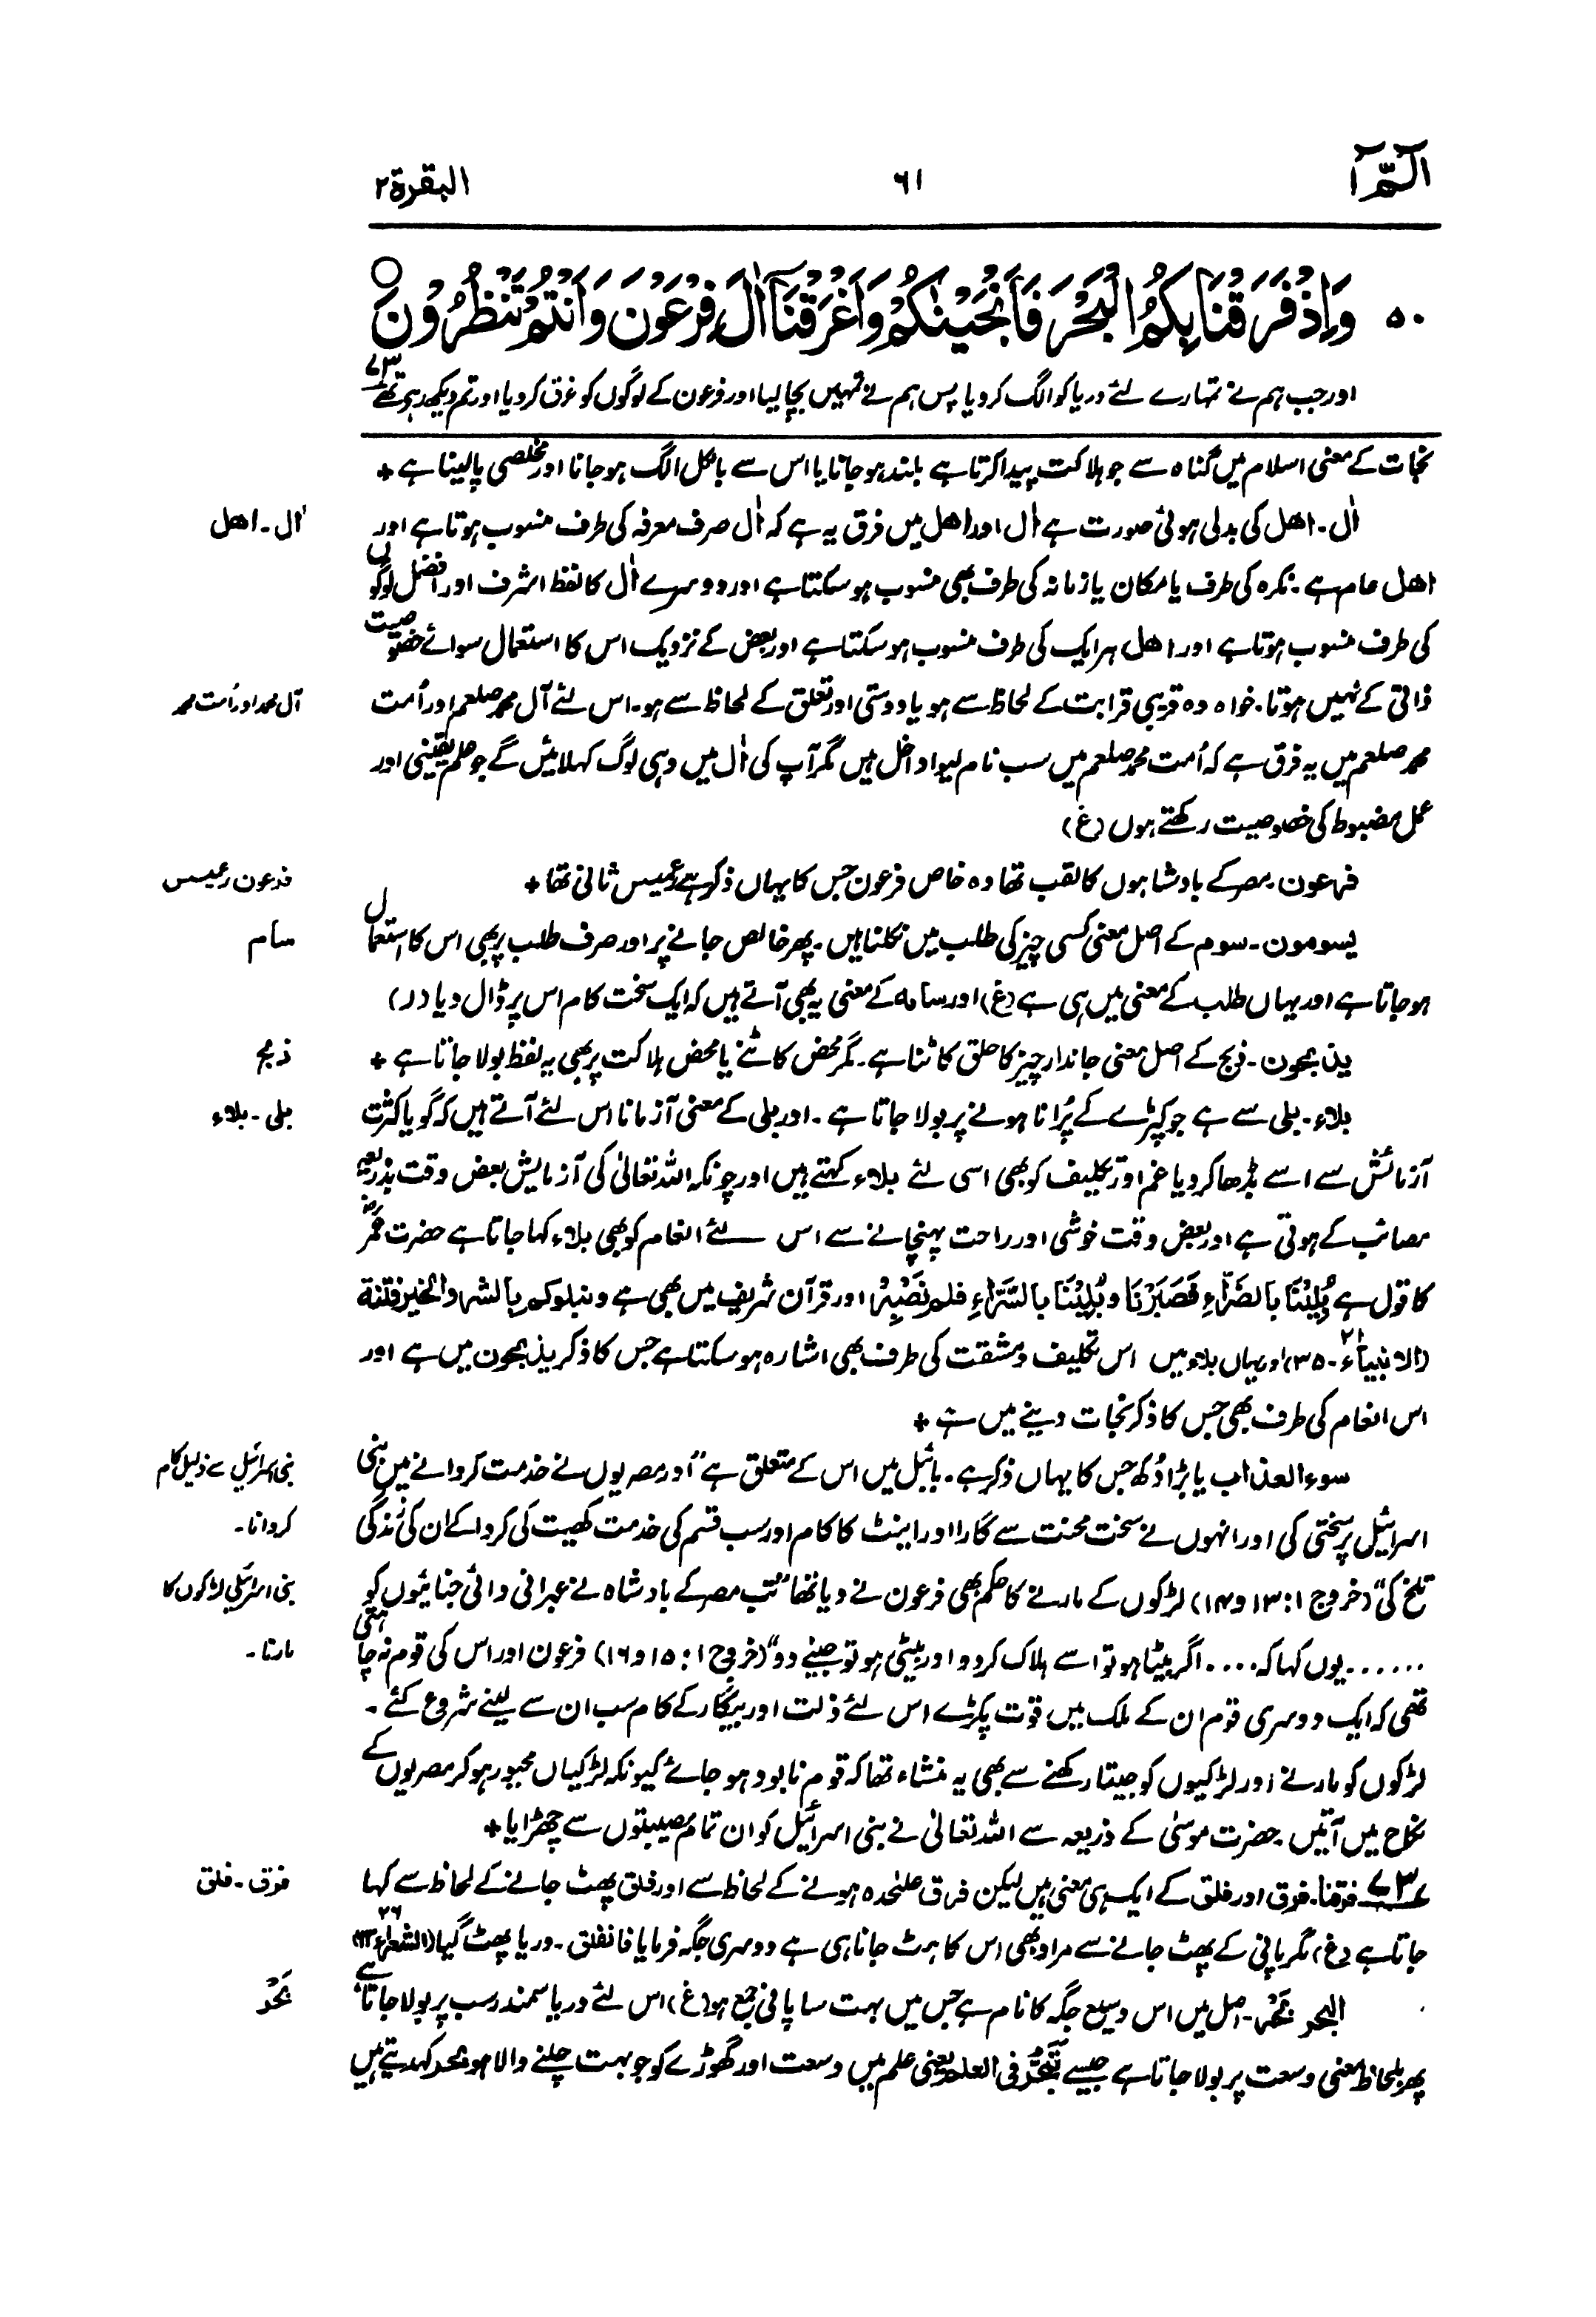 الٓمّٓ ۱
۶۱
البقرة ۲
۵۰ وَاِذْ فَرَقْنَا بِكُمُ الْبَحْرَ فَاَنْجَيْنٰكُمْ وَاَغْرَقْنَآ اٰلَ فِرْعَوْنَ وَاَنْتُمْ تَنْظُرُوْنَ ○
اور جب ہم نے تمہارے لئے دریا کو الگ کر دیا پس ہم نے تمہیں بچا لیا اور فرعون کے لوگوں کو غرق کر دیا اور تم دیکھ رہے تھے ۷۳
نجات کے معنی اسلام میں گناہ سے جو ہلاکت پیدا کرتا ہے بلند ہو جانا یا اس سے بالکل الگ ہو جانا اور مخلصی پا لینا ہے +
اٰل۔ اھل
اٰل۔ اھل کی بدلی ہوئی صورت ہے اٰل اور اھل میں فرق یہ ہے کہ اٰل صرف معرفہ کی طرف منسوب ہوتا ہے اور
اھل عام ہے۔ نکرہ کی طرف یا مکان یا زمانہ کی طرف بھی منسوب ہو سکتا ہے اور دوسرے اٰل کا لفظ اشرف اور افضل لوگوں
کی طرف منسوب ہوتا ہے اور اھل ہر ایک کی طرف منسوب ہو سکتا ہے اور بعض کے نزدیک اس کا استعمال سوائے خصوصیت
ذاتی کے نہیں ہوتا۔ خواہ وہ قریبی قرابت کے لحاظ سے ہو یا دوستی اور تعلق کے لحاظ سے ہو۔ اس لئے آل محمد صلعم اور اُمت
آل محمد اور اُمت محمد
محمد صلعم میں یہ فرق ہے کہ اُمت محمد صلعم میں سب نام لیوا داخل ہیں مگر آپ کی اٰل میں وہی لوگ کہلائیں گے جو علم یقینی اور
عمل مضبوط کی خصوصیت رکھتے ہوں (غ)
فرعون۔ مصر کے بادشاہوں کا لقب تھا وہ خاص فرعون جس کا یہاں ذکر ہے رعمیس ثانی تھا +
فرعون رعمیس
یسومون۔ سوم کے اصل معنی کسی چیز کی طلب میں نکلنا ہیں۔ پھر خالص جانے پر اور صرف طلب پر بھی اس کا استعمال
سام
ہو جاتا ہے اور یہاں طلب کے معنی میں ہی ہے (غ) اور سامه کے معنی یہ بھی آتے ہیں کہ ایک سخت کام اس پر ڈال دیا (ر)
یذبحون۔ ذبح کے اصل معنی جاندار چیز کا حلق کاٹنا ہے۔ مگر محض کاٹنے یا محض ہلاکت پر بھی یہ لفظ بولا جاتا ہے +
ذبح
بلاء۔ بلی سے ہے جو کپڑے کے پُرانا ہونے پر بولا جاتا ہے۔ اور بلی کے معنی آزمانا اس لئے آتے ہیں کہ گویا کثرت
بلی۔ بلاء
آزمائش سے اسے بڈھا کر دیا غم اور تکلیف کو بھی اسی لئے بلاء کہتے ہیں اور چونکہ اللہ تعالیٰ کی آزمایش بعض وقت بذریعہ
مصائب کے ہوتی ہے اور بعض وقت خوشی اور راحت پہنچانے سے اس لئے انعام کو بھی بلاء کہا جاتا ہے حضرت عمرؓ
کا قول ہے بُلِيْنَا بالضَّرَّاءِ فَصَبَرْنَا وبُلِيْنَا بالسَّرَّاءِ فلم نَصْبِرْ اور قرآن شریف میں بھی ہے ونبلوكم بالشر والخير فتنة
(الانبیآء ۲۱۔۳۵) اور یہاں بلاء میں اس تکلیف و مشقت کی طرف بھی اشارہ ہو سکتا ہے جس کا ذکر یذبحون میں ہے اور
اس انعام کی طرف بھی جس کا ذکر نجات دینے میں ہے +
سوء العذاب یا بڑا دُکھ جس کا یہاں ذکر ہے۔ بائبل میں اس کے متعلق ہے "اور مصریوں نے خدمت کروانے میں بنی
بنی اسرائیل سے ذلیل کام
اسرائیل پر سختی کی اور انہوں نے سخت محنت سے گارا اور اینٹ کا کام اور سب قسم کی خدمت کھیت کی کروا کے ان کی زندگی
کروانا۔
تلخ کی" (خروج ۱: ۱۳ و ۱۴) لڑکوں کے مارنے کا حکم بھی فرعون نے دیا تھا "تب مصر کے بادشاہ نے عبرانی دائی جنائیوں کو
بنی اسرائیلی لڑکوں کا
...... یوں کہا کہ .... اگر بیٹا ہو تو اسے ہلاک کر دو اور بیٹی ہو تو جینے دو" (خروج ۱: ۱۵ و ۱۶) فرعون اور اس کی قوم نہ چاہتی
مارنا۔
تھی کہ ایک دوسری قوم ان کے ملک میں قوت پکڑے اس لئے ذلت اور بیگار کے کام سب ان سے لینے شروع کئے۔
لڑکوں کو مارنے اور لڑکیوں کو جیتا رکھنے سے بھی یہ منشاء تھا کہ قوم نابود ہو جائے کیونکہ لڑکیاں مجبور ہو کر مصریوں کے
نکاح میں آتیں۔ حضرت موسیٰ کے ذریعہ سے اللہ تعالیٰ نے بنی اسرائیل کو ان تمام مصیبتوں سے چھڑایا +
۷۳ فرقنا۔ فرق اور فلق کے ایک ہی معنی ہیں لیکن فرق علیحدہ ہونے کے لحاظ سے اور فلق پھٹ جانے کے لحاظ سے کہا
فرق۔ فلق
جاتا ہے (غ) مگر پانی کے پھٹ جانے سے مراد بھی اس کا ہٹ جانا ہی ہے دوسری جگہ فرمایا فانفلق۔ دریا پھٹ گیا (الشعراء ۲۶۔۶۳)
البحر بَحْر۔ اصل میں اس وسیع جگہ کا نام ہے جس میں بہت سا پانی جمع ہو (غ) اس لئے دریا سمندر سب پر بولا جاتا ہے
بَحْر
پھر بلحاظ معنی وسعت پر بولا جاتا ہے جیسے تَبَحُّر فی العلم یعنی علم میں وسعت اور گھوڑے کو جو بہت چلنے والا ہو بحر کہدیتے ہیں